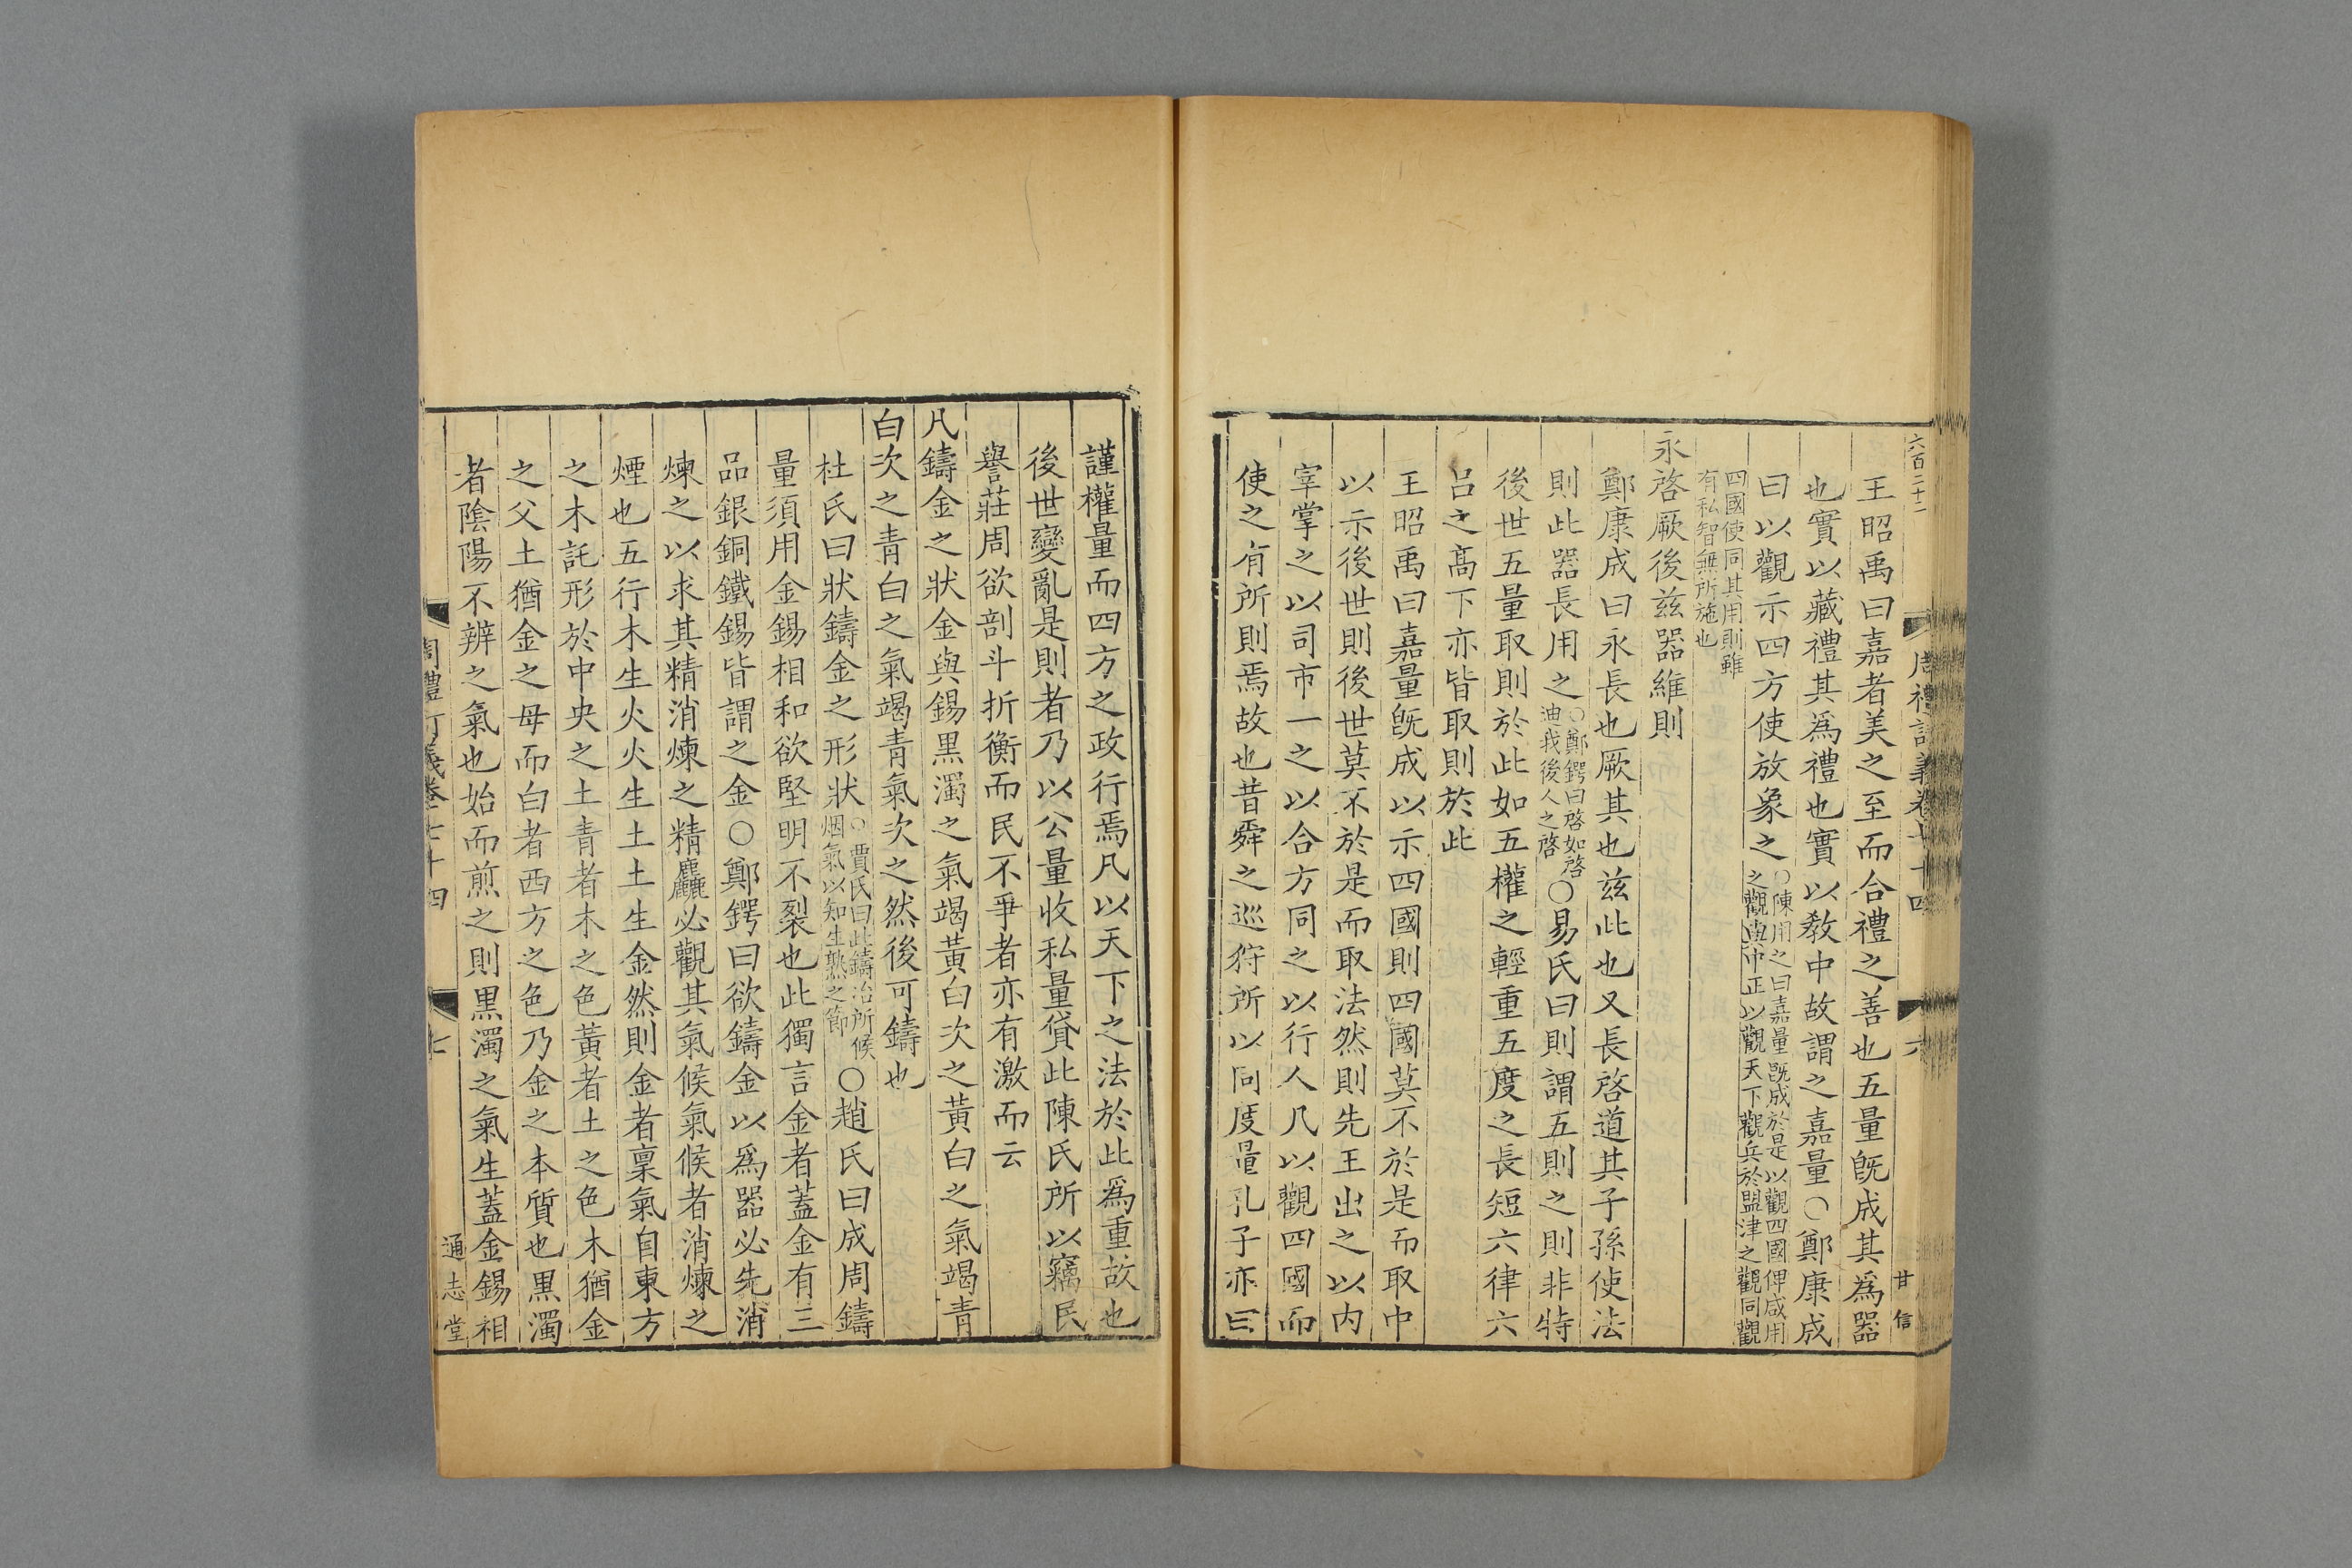 六百二十二
周禮訂義卷七十四
六
甘信
王昭禹曰嘉者美之至而合禮之善也五量旣成其爲器
也實以藏禮其爲禮也實以敎中故謂之嘉量○鄭康成
曰以觀示四方使放象之○陳用之曰嘉量旣成於是以觀四國俾咸用
之觀與中正以觀天下觀兵於盟津之觀同觀
四國使同其用則雖
有私智無所施也
永啓厥後兹器維則
鄭康成曰永長也厥其也兹此也又長啓道其子孫使法
則此器長用之○鄭鍔曰啓如啓
迪我後人之啓○易氏曰則謂五則之則非特
後世五量取則於此如五權之輕重五度之長短六律六
呂之高下亦皆取則於此
王昭禹曰嘉量旣成以示四國則四國莫不於是而取中
以示後世則後世莫不於是而取法然則先王出之以内
宰掌之以司市一之以合方同之以行人凡以觀四國而
使之有所則焉故也昔舜之巡狩所以同度量孔子亦曰
謹權量而四方之政行焉凡以天下之法於此爲重故也
後世變亂是則者乃以公量收私量貸此陳氏所以竊民
譽莊周欲剖斗折衡而民不爭者亦有激而云
凡鑄金之狀金與錫黑濁之氣竭黃白次之黃白之氣竭青
白次之青白之氣竭青氣次之然後可鑄也
杜氏曰狀鑄金之形狀○賈氏曰此鑄冶所候
烟氣以知生熟之節○趙氏曰成周鑄
量須用金錫相和欲堅明不裂也此獨言金者蓋金有三
品銀銅鐵錫皆謂之金○鄭鍔曰欲鑄金以爲器必先消
煉之以求其精消煉之精麤必觀其氣候氣候者消煉之
煙也五行木生火火生土土生金然則金者稟氣自東方
之木託形於中央之土青者木之色黃者土之色木猶金
之父土猶金之母而白者西方之色乃金之本質也黑濁
者陰陽不辨之氣也始而煎之則黑濁之氣生蓋金錫相
周禮訂義卷七十四
七
通志堂